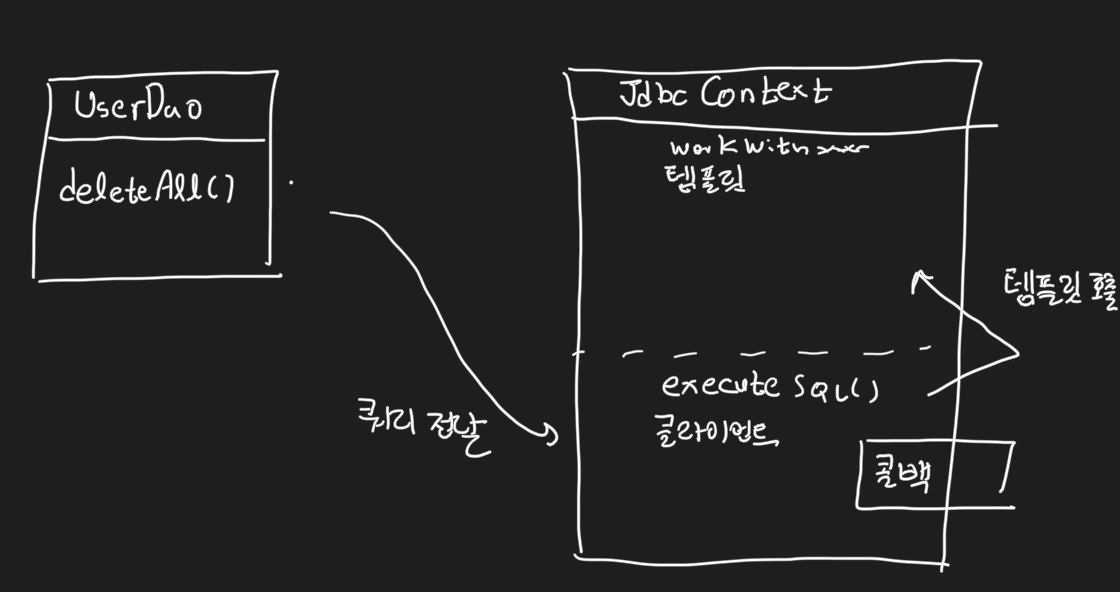 UserDao
deleteAll()
쿼리 전달
Jdbc Context
workWith
템플릿
executeSQL()
클라이언트
콜백
템플릿 호출